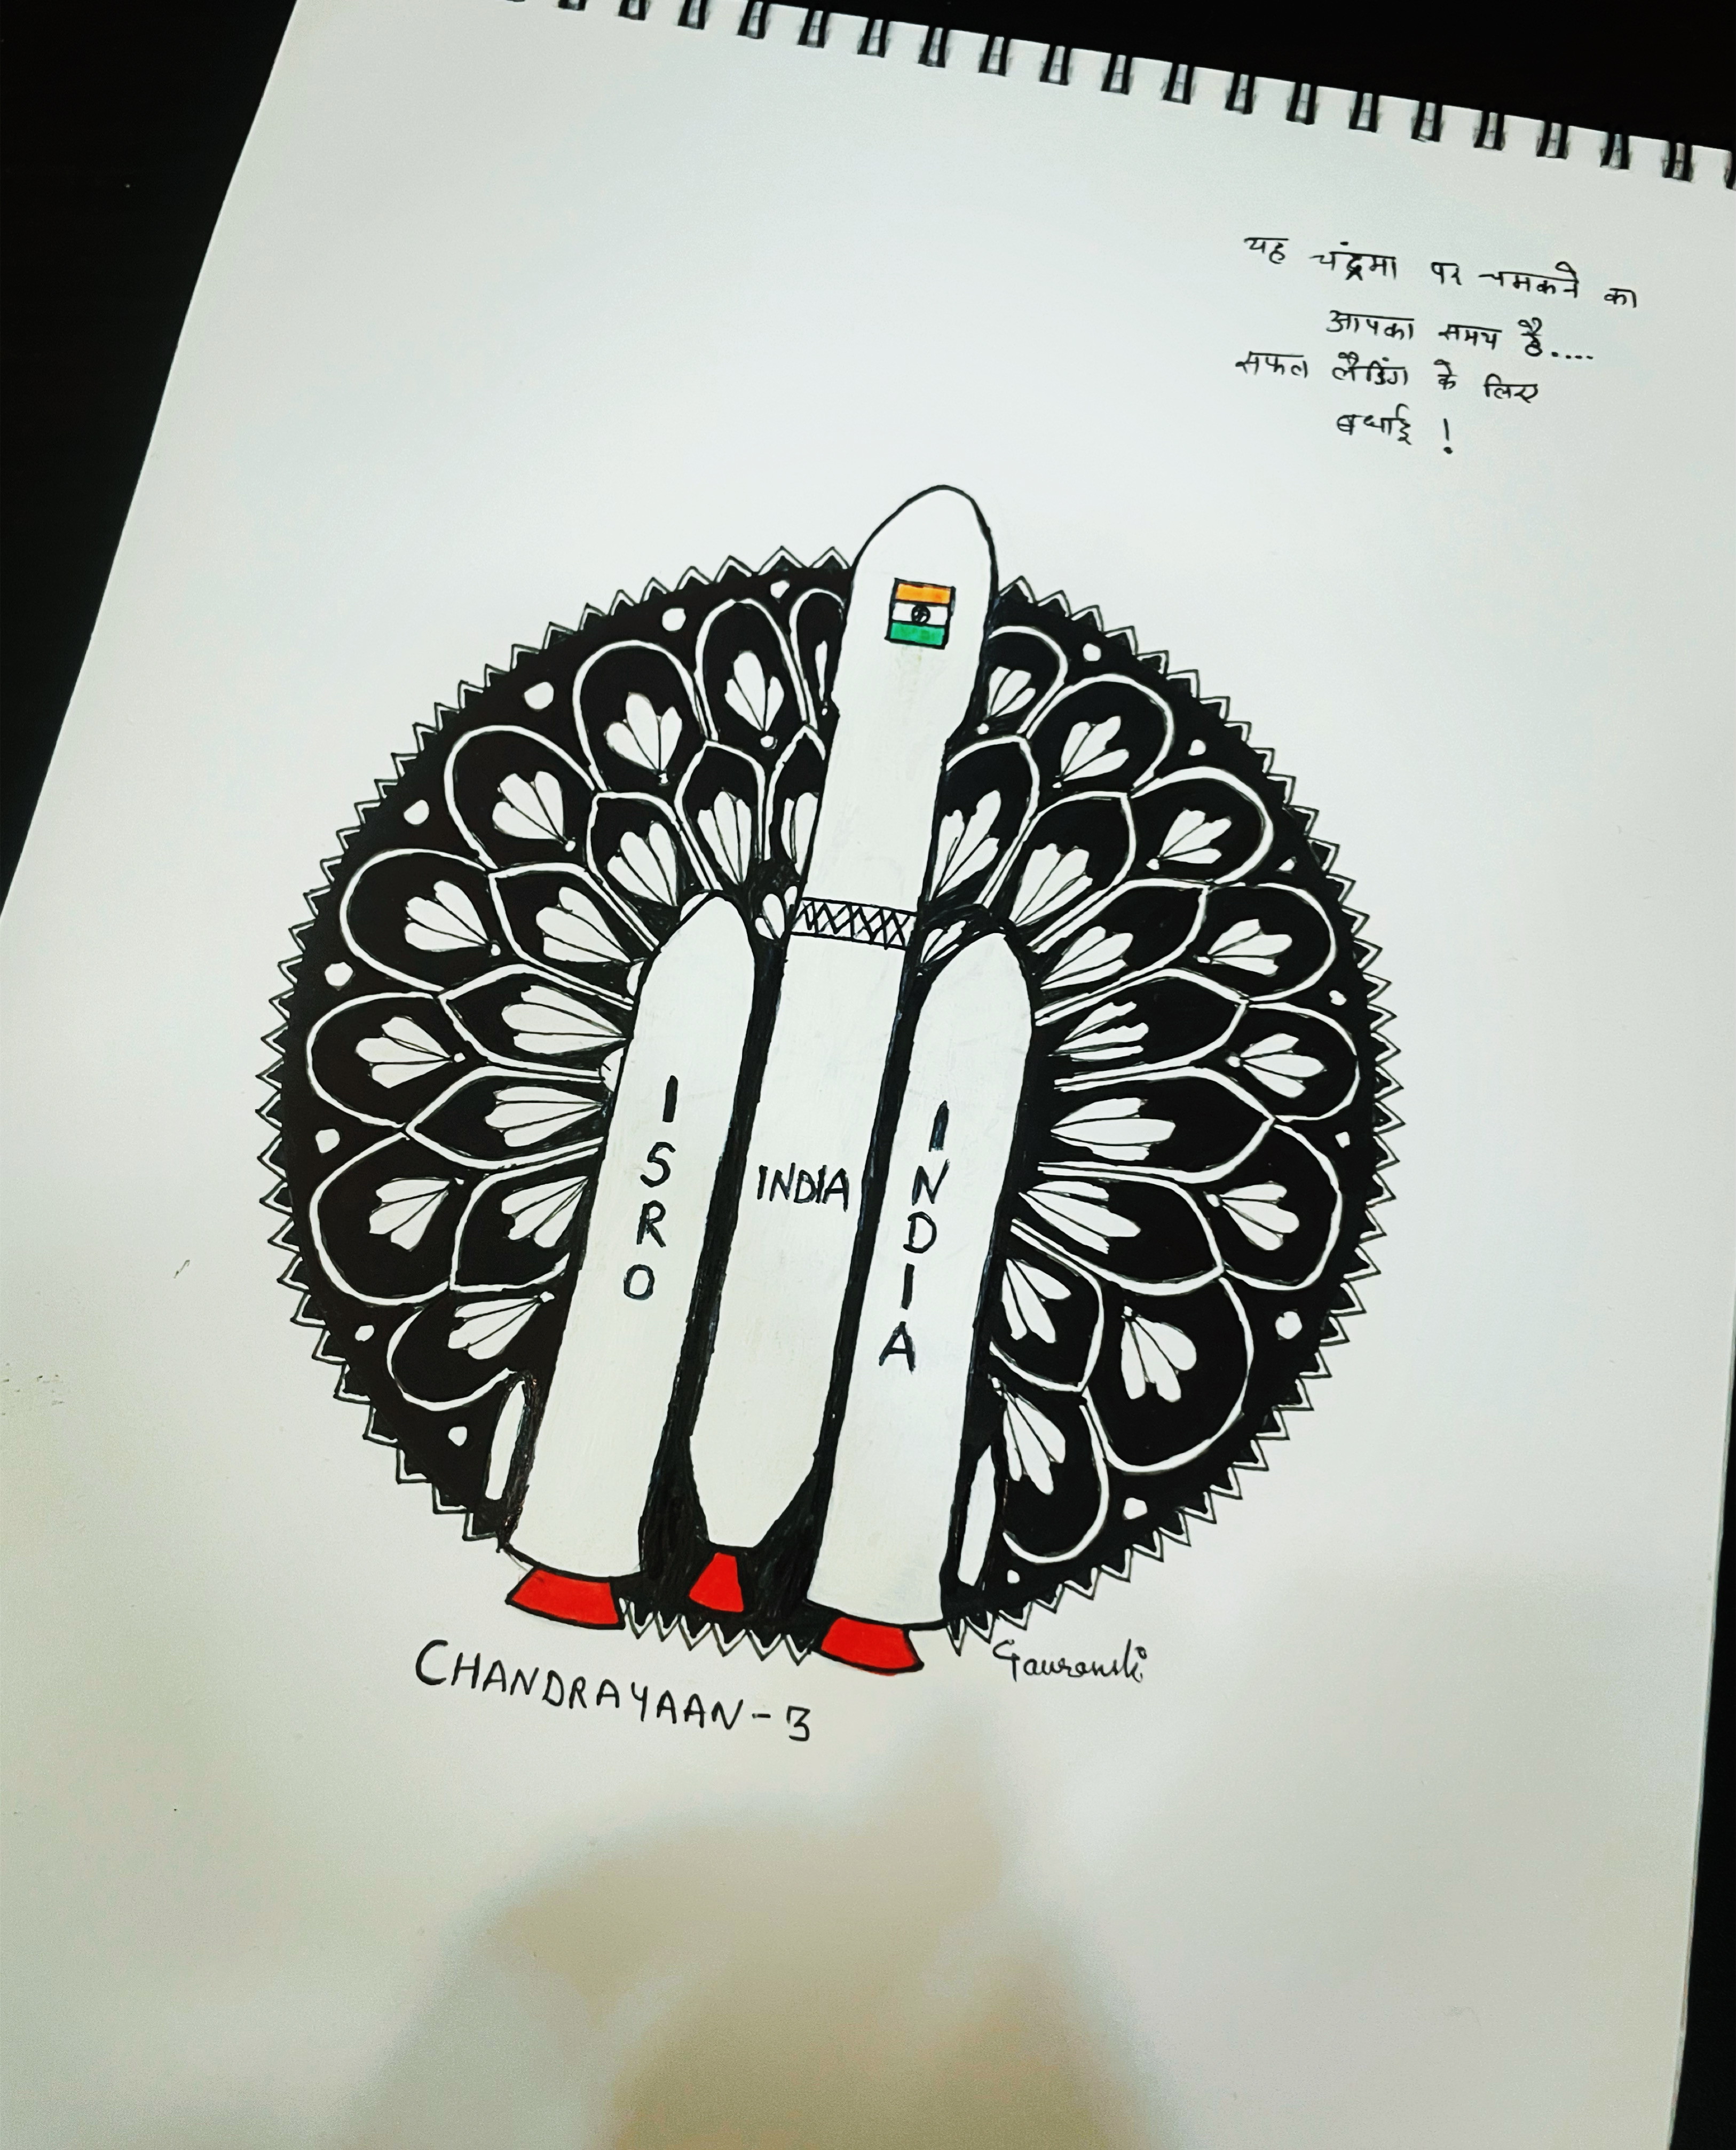 यह चंद्रमा पर चमकने का
आपका समय है....
सफल लैंडिंग के लिए
बधाई !
ISRO
INDIA
INDIA
CHANDRAYAAN-3
Gauranshi